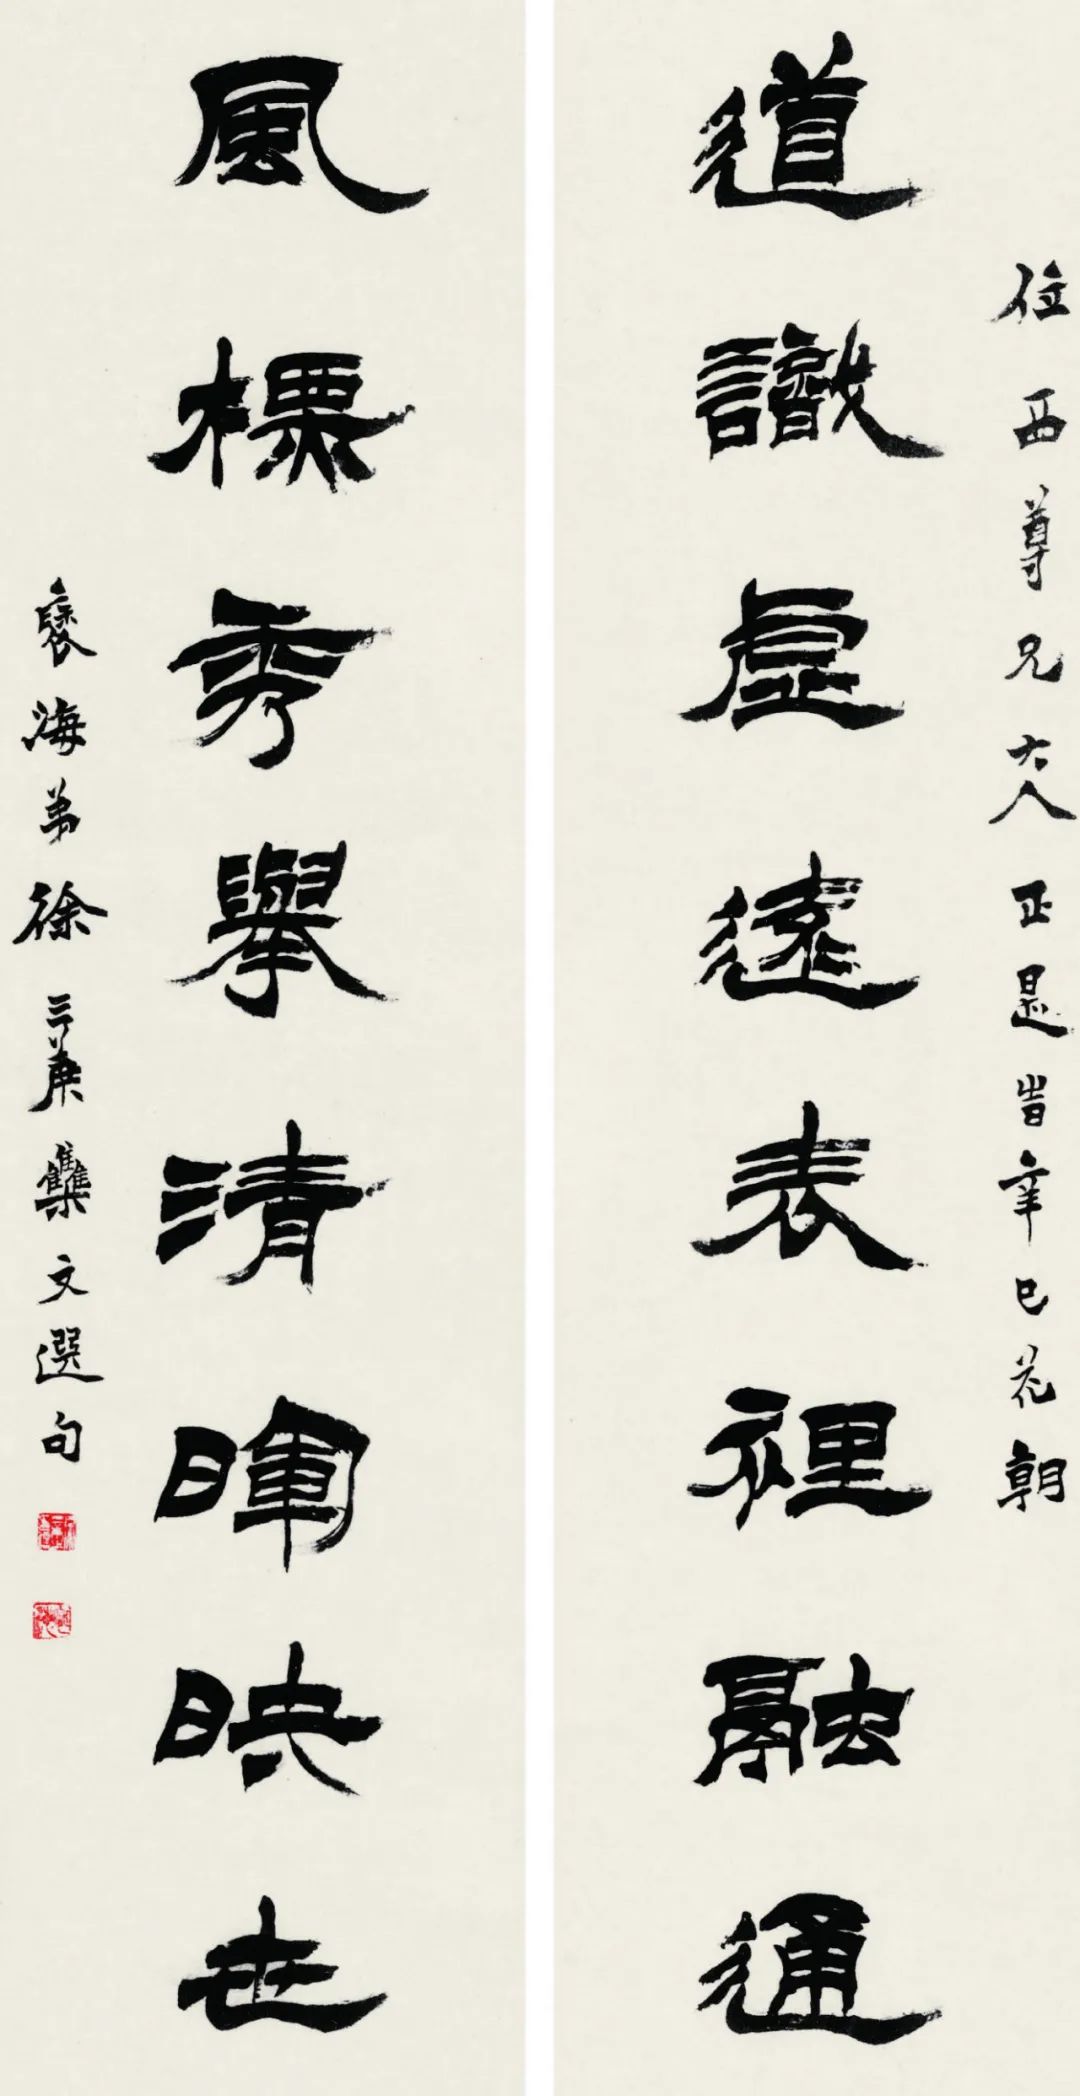 位西尊兄大人正是旹辛巳花朝
道識虛遠表裡融通
風標秀舉清暉映世
褎海弟徐三庚雧文選句